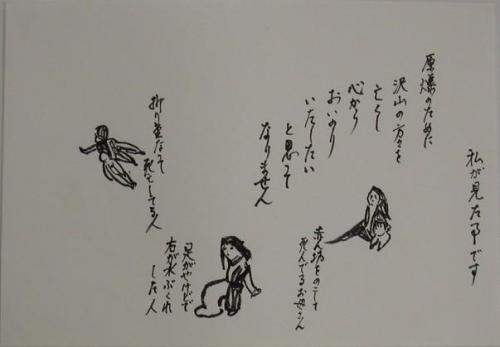 私が見た事です
原爆のために
沢山の方々を
亡くし
心から
おいのり
いたしたい
と思って
なりません
赤ん坊をのこして
死んでるお母さん
足がやけどで
右が水ぶくれ
した人
折り重なって
死亡してる人